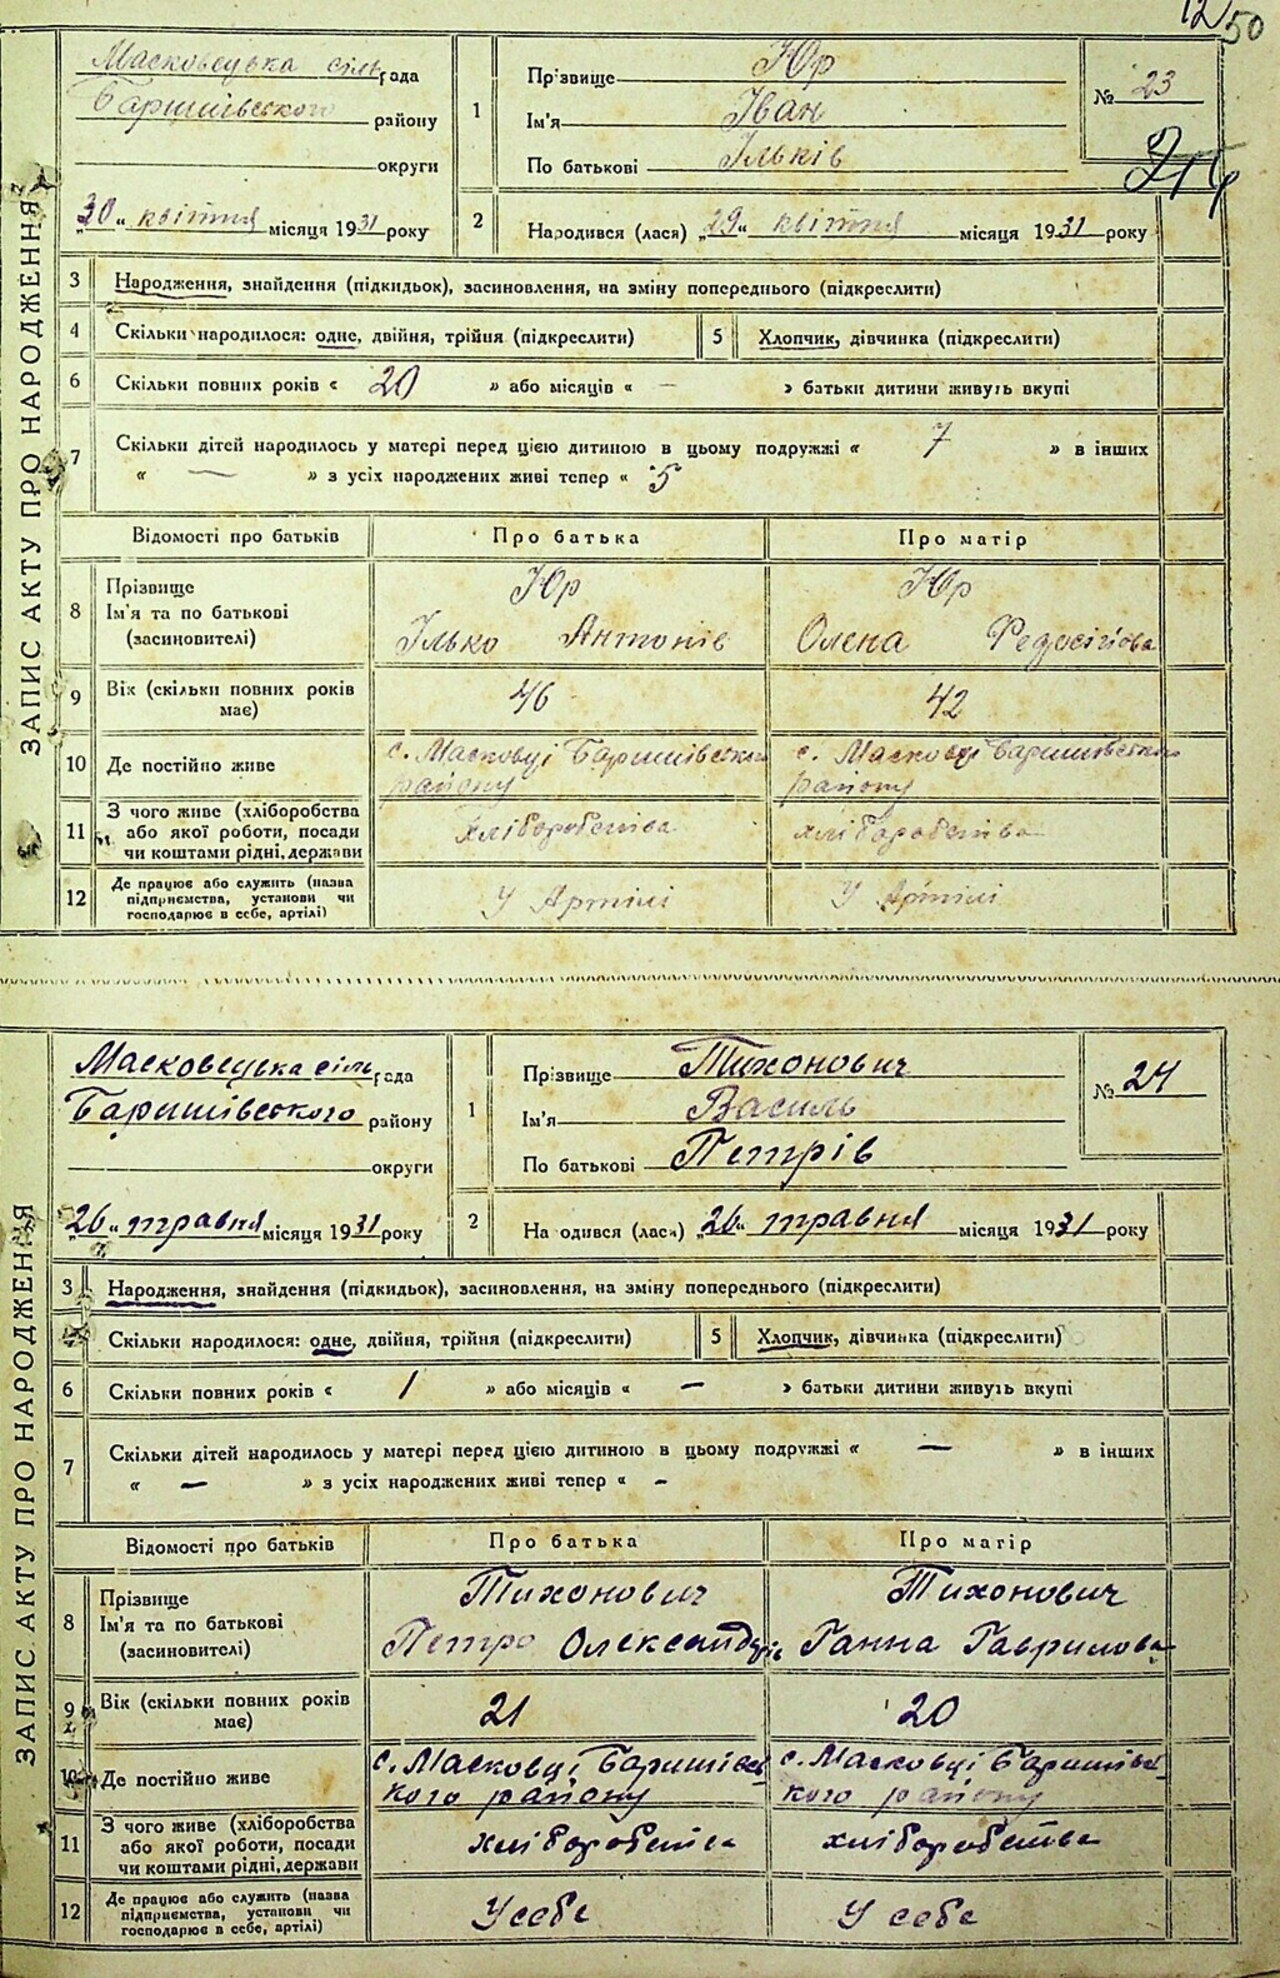 50
ЗАПИС АКТУ ПРО НАРОДЖЕННЯ
Масковецька сільрада
Баришівського району
округи
„30“ квітня місяця 1931 року
1
Прізвище Юр
Ім'я Іван
По батькові Ільків
№ 23
2
Народився (лася) „29“ квітня місяця 1931 року
3 Народження, знайдення (підкидьок), засиновлення, на зміну попереднього (підкреслити)
4 Скільки народилося: одне, двійня, трійня (підкреслити) 5 Хлопчик, дівчинка (підкреслити)
6 Скільки повних років « 20 » або місяців « — » батьки дитини живуть вкупі
7 Скільки дітей народилось у матері перед цією дитиною в цьому подружжі « 7 » в інших
« — » з усіх народжених живі тепер « 5
Відомості про батьків Про батька Про матір
8 Прізвище Юр Юр
Ім'я та по батькові Ілько Антонів Олена Федосійова
(засиновителі)
9 Вік (скільки повних років має) 46 42
10 Де постійно живе с. Масковці Баришівського району с. Масковці Баришівського району
11 З чого живе (хліборобства або якої роботи, посади чи коштами рідні, держави хліборобства хліборобства
12 Де працює або служить (назва підприємства, установи чи господарює в себе, артілі) У Артілі У Артілі
ЗАПИС АКТУ ПРО НАРОДЖЕННЯ
Масковецька сільрада
Баришівського району
округи
„26“ травня місяця 1931 року
1
Прізвище Тихонович
Ім'я Василь
По батькові Петрів
№ 24
2
На одився (лася) „26“ травня місяця 1931 року
3 Народження, знайдення (підкидьок), засиновлення, на зміну попереднього (підкреслити)
Скільки народилося: одне, двійня, трійня (підкреслити) 5 Хлопчик, дівчинка (підкреслити)
6 Скільки повних років « 1 » або місяців « — » батьки дитини живуть вкупі
7 Скільки дітей народилось у матері перед цією дитиною в цьому подружжі « — » в інших
« — » з усіх народжених живі тепер « -
Відомості про батьків Про батька Про матір
8 Прізвище Тихонович Тихонович
Ім'я та по батькові Петро Олександрів Ганна Гаврилова
(засиновителі)
9 Вік (скільки повних років має) 21 20
10 Де постійно живе с. Масковці Баришівського району с. Масковці Баришівського району
11 З чого живе (хліборобства або якої роботи, посади чи коштами рідні, держави хліборобства хліборобства
12 Де працює або служить (назва підприємства, установи чи господарює в себе, артілі) У себе У себе